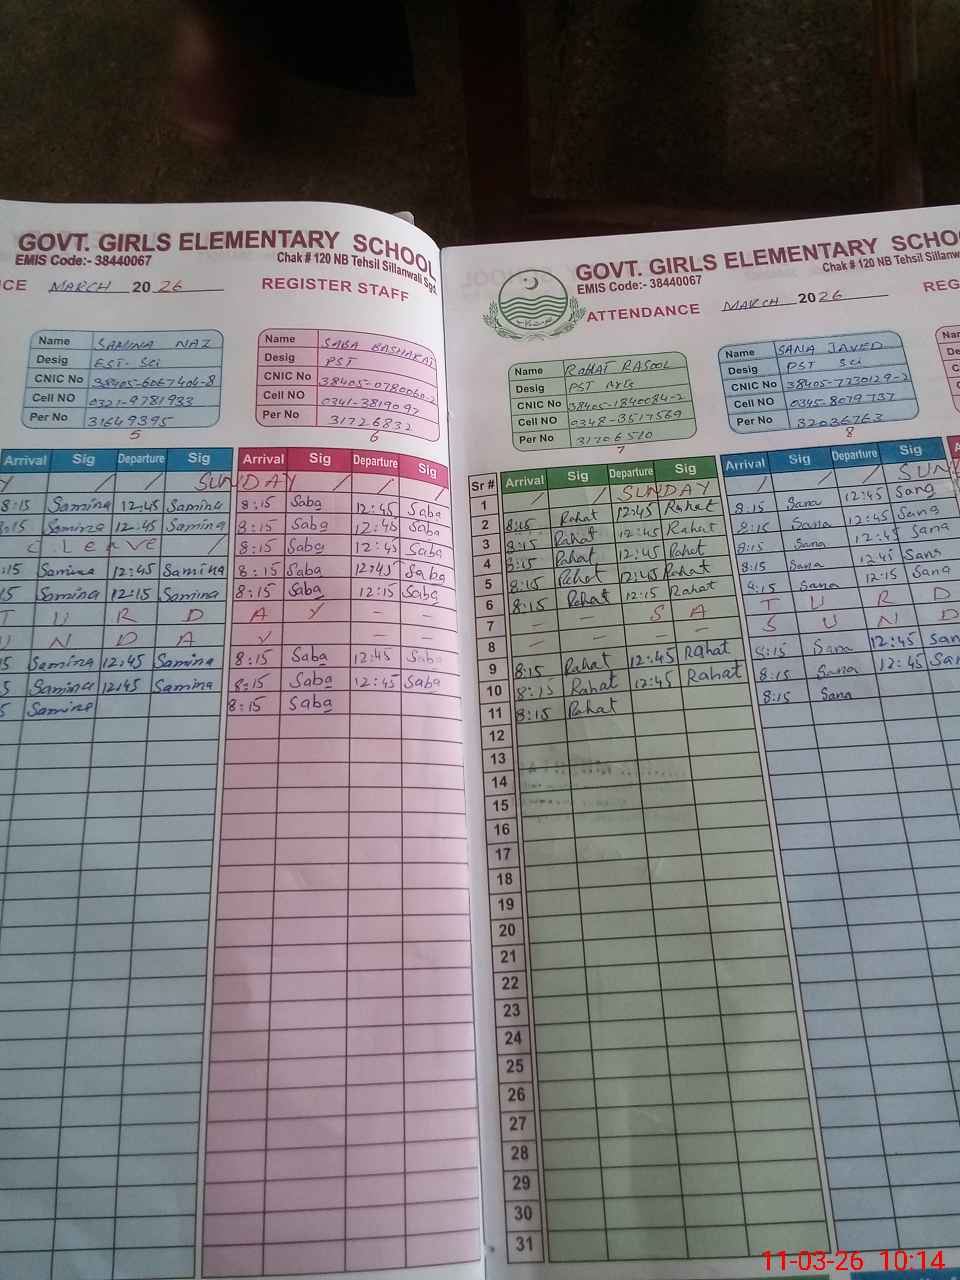 GOVT. GIRLS ELEMENTARY SCHOOL
EMIS Code:- 38440067
Chak # 120 NB Tehsil Sillanwali Sgd.
CE MARCH 2026 REGISTER STAFF
Name SAMINA NAZ
Desig EST- Sci
CNIC No 38405-6067404-8
Cell NO 0321-9781933
Per No 31649395
5
Name SABA BASHARAT
Desig PST
CNIC No 38405-0780060-2
Cell NO 0341-3819097
Per No 31726832
6
Arrival Sig Departure Sig Arrival Sig Departure Sig
Y / / SUNDAY / / /
8:15 Samina 12:45 Samina 8:15 Saba 12:45 Saba
8:15 Samina 12:45 Samina 8:15 Saba 12:45 Saba
C. Leave / 8:15 Saba 12:45 Saba
:15 Samina 12:45 Samina 8:15 Saba 12:45 Saba
15 Samina 12:15 Samina 8:15 Saba 12:15 Saba
T U R D A Y - -
U N D A Y - -
15 Samina 12:45 Samina 8:15 Saba 12:45 Saba
5 Samina 12:45 Samina 8:15 Saba 12:45 Saba
5 Samina 8:15 Saba
GOVT. GIRLS ELEMENTARY SCHO
EMIS Code:- 38440067
Chak # 120 NB Tehsil Sillanw
ATTENDANCE MARCH 2026 REG
Name RAHAT RASOOL
Desig PST Arts
CNIC No 38405-1840084-2
Cell NO 0348-3517569
Per No 31706510
7
Name SANA JAVED
Desig PST Sci
CNIC No 38405-7730129-2
Cell NO 0345-8079737
Per No 32036763
8
Na
De
C
C
P
Sr # Arrival Sig Departure Sig Arrival Sig Departure Sig A
1 / / SUNDAY / / / SUN
2 8:15 Rahat 12:45 Rahat 8:15 Sana 12:45 Sana
3 8:15 Rahat 12:45 Rahat 8:15 Sana 12:45 Sana
4 8:15 Rahat 12:45 Rahat 8:15 Sana 12:45 Sana
5 8:15 Rahat 12:45 Rahat 8:15 Sana 12:45 Sana
6 8:15 Rahat 12:15 Rahat 8:15 Sana 12:15 Sana
7 - - S A T U R D
8 - - - - S U N D
9 8:15 Rahat 12:45 Rahat 8:15 Sana 12:45 San
10 8:15 Rahat 12:45 Rahat 8:15 Sana 12:45 San
11 8:15 Rahat 8:15 Sana
12
13
14
15
16
17
18
19
20
21
22
23
24
25
26
27
28
29
30
31
11-03-26 10:14